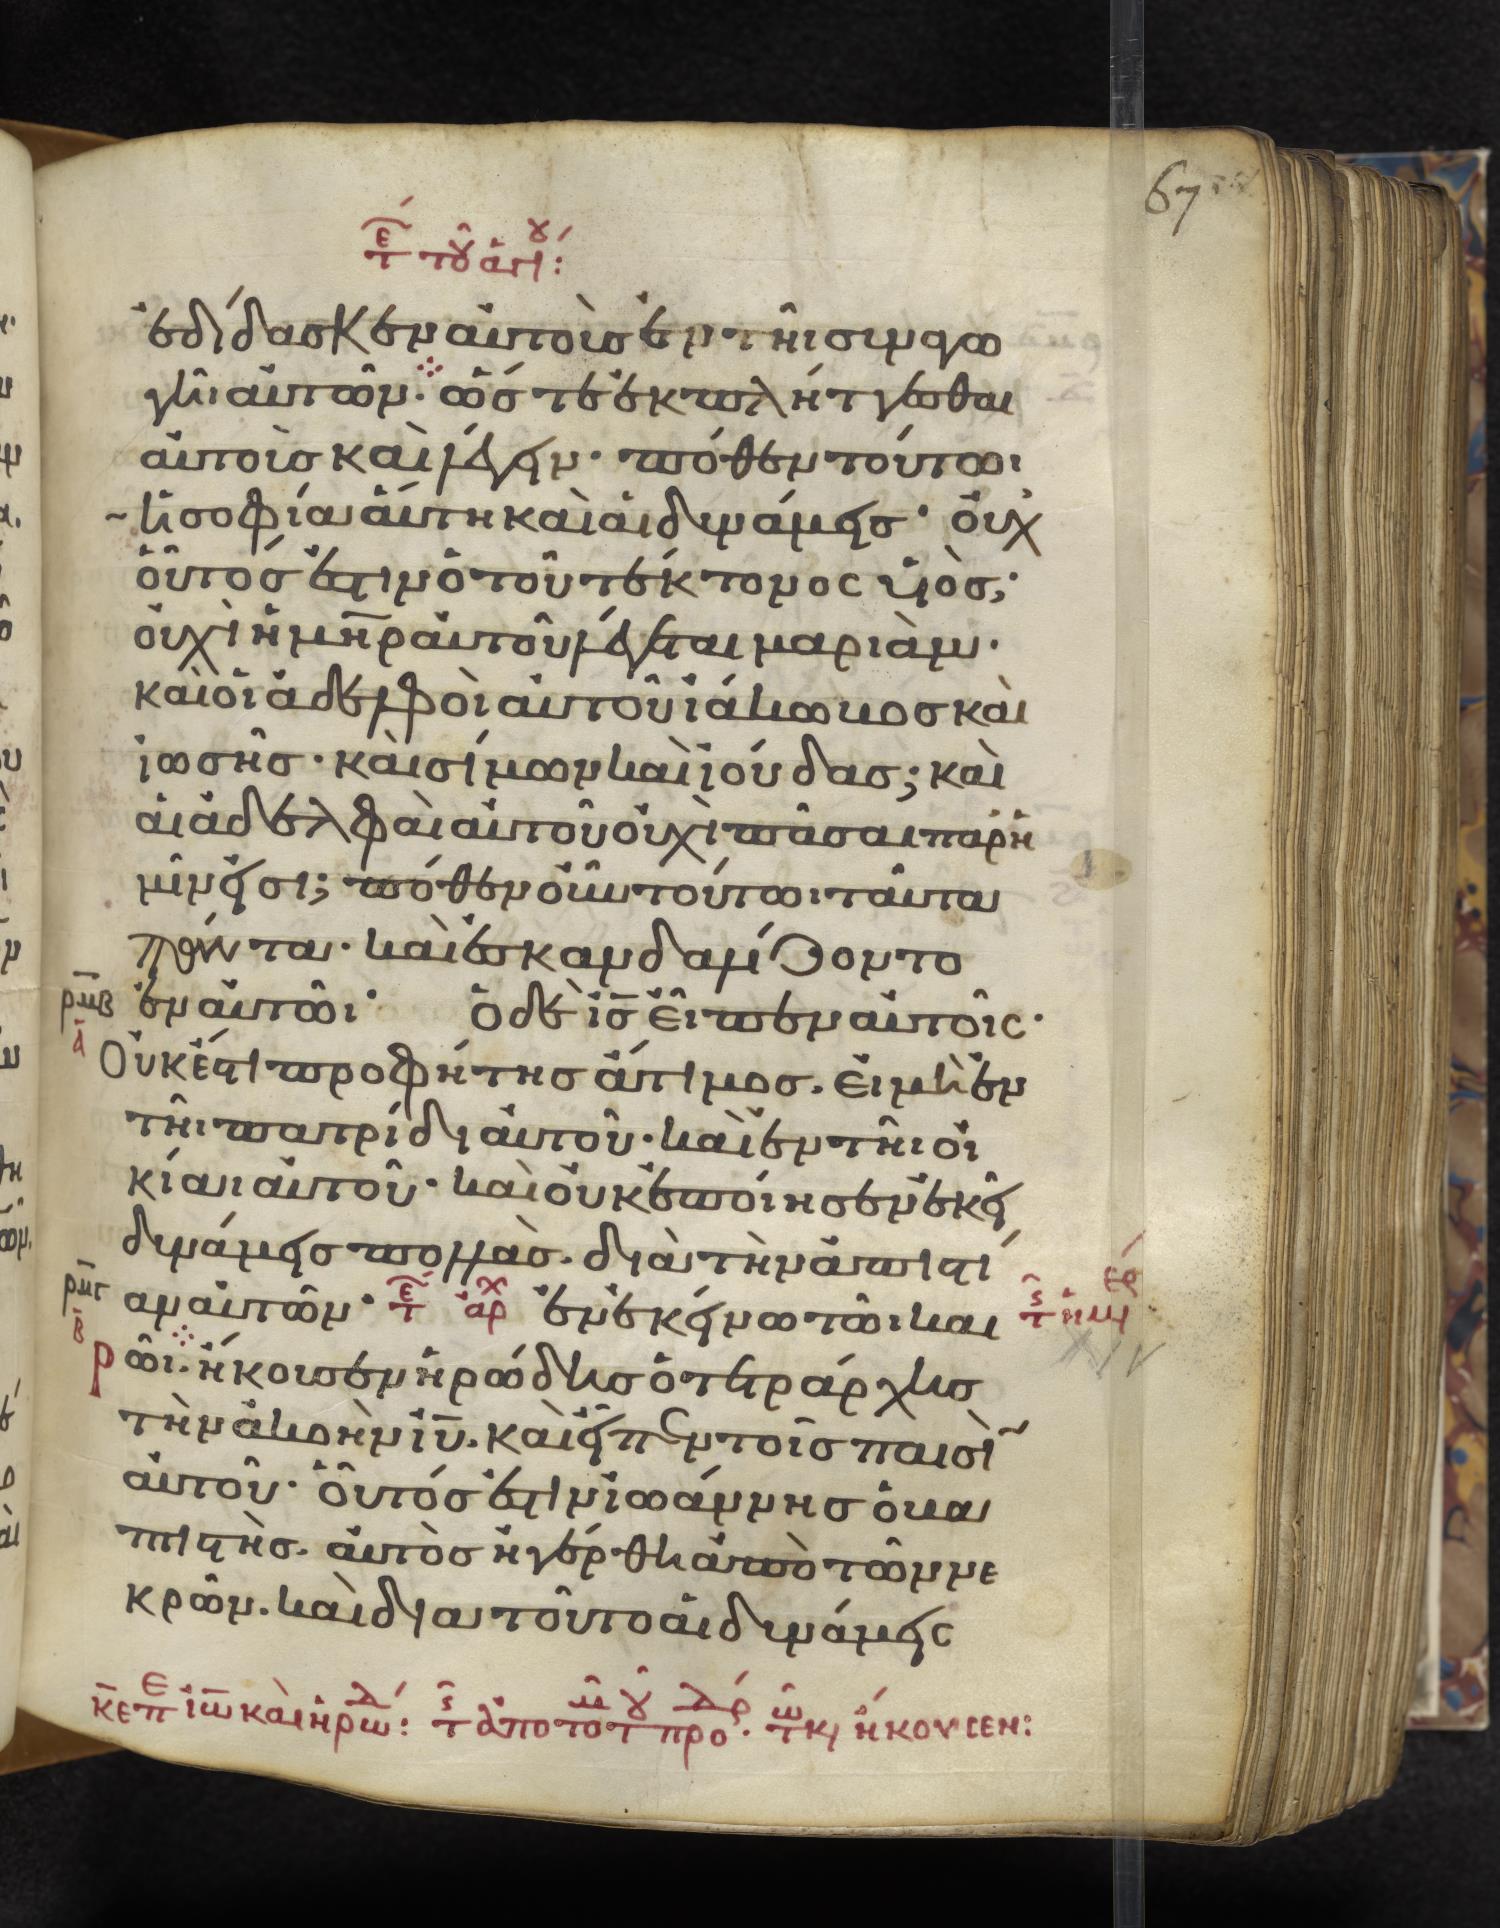 67
ἐδίδασκεν αὐτοὺς ἐν τῆι συναγω
γῆι αὐτῶν· ὥστε ἐκπλήττεσθαι
αὐτοὺς καὶ λέγειν· πόθεν τούτωι
ἡ σοφία αὕτη καὶ αἱ δυνάμεις· οὐχ
οὗτός ἐστιν ὁ τοῦ τέκτονος υἱὸς;
οὐχὶ ἡ μη̅ρ αὐτοῦ λέγεται μαριὰμ·
καὶ οἱ ἀδελφοὶ αὐτοῦ ἰάκωβος καὶ
ἰωσῆς· καὶ σίμων καὶ ἰούδας; καὶ
αἱ ἀδελφαὶ αὐτοῦ οὐχὶ πᾶσαι παρ' ἡ
μῖν εἰσι; πόθεν οὖν τούτωι ταῦτα
πάντα· καὶ ἐσκανδαλίζοντο
ρμβ ἐν αὐτῶι· ὁ δὲ ι̅ς̅ εἶπεν αὐτοῖς·
α Οὐκ ἔστι προφήτης ἄτιμος. εἰ μὴ ἐν
τῆι πατρίδι αὐτοῦ· καὶ ἐν τῆι οἰ
κίαι αὐτοῦ· καὶ οὐκ ἐποίησεν ἐκεῖ
δυνάμεις πολλὰς. διὰ τὴν ἀπιστί
ρμγ αν αὐτῶν· ἀρχ ἐν ἐκείνω τῶι και
β ρῶι· ἤκουσεν ἡρώδης ὁ τετράρχης
XIV
τὴν ἀκοὴν ι̅υ̅. καὶ εἶπεν τοῖς παισὶ
αὐτοῦ· οὗτός ἐστιν ἰωάννης ὁ βα
πτιστὴς. αὐτὸς ἠγέρθη ἀπὸ τῶν νε
κρῶν. καὶ διὰ τοῦτο αἱ δυνάμεις